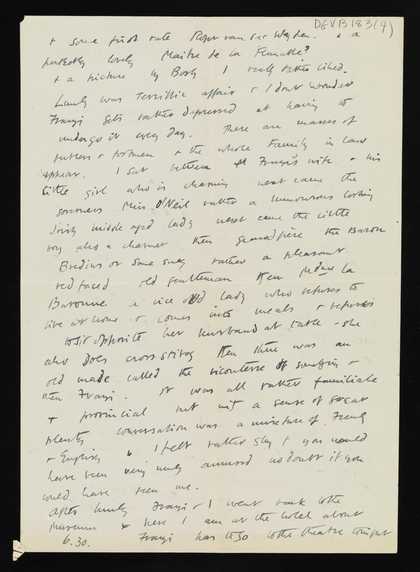 DEVB183(4)
+ some first rate Roger van der Weyden. + a
perfectly lovely Maitre de la Flemalle?
+ a picture by Bosch I really rather liked.
Lunch was terrific affair + I dont wonder
Franzi gets rather depressed at having to
undergo it every day. There are masses of
butlers + footmen + the whole Family in law
appear. I sat between Franzi's wife + his
little girl who is charming next came the
governess Miss O'Neil rather a humourous looking
Irish middle aged lady next came the little
boy also a charmer then grandpère the Baron
or some such rather a pleasant
red faced old gentleman then la
Baronne a nice old lady who refuses to
live at home + comes into meals + refuses
to sit opposite her husband at table - she
also does cross strings then there was an
old maid called the vicontesse of something +
then Franzi. It was all rather familiale
+ provincial but not a sense of great
plenty conversation was a mixture of French
+ English + I felt rather shy + you would
have been very much amused no doubt if you
could have seen me.
After lunch Franzi + I went back to the
museum + here I am at the hotel about
6.30. Franzi has to go to the theatre tonight